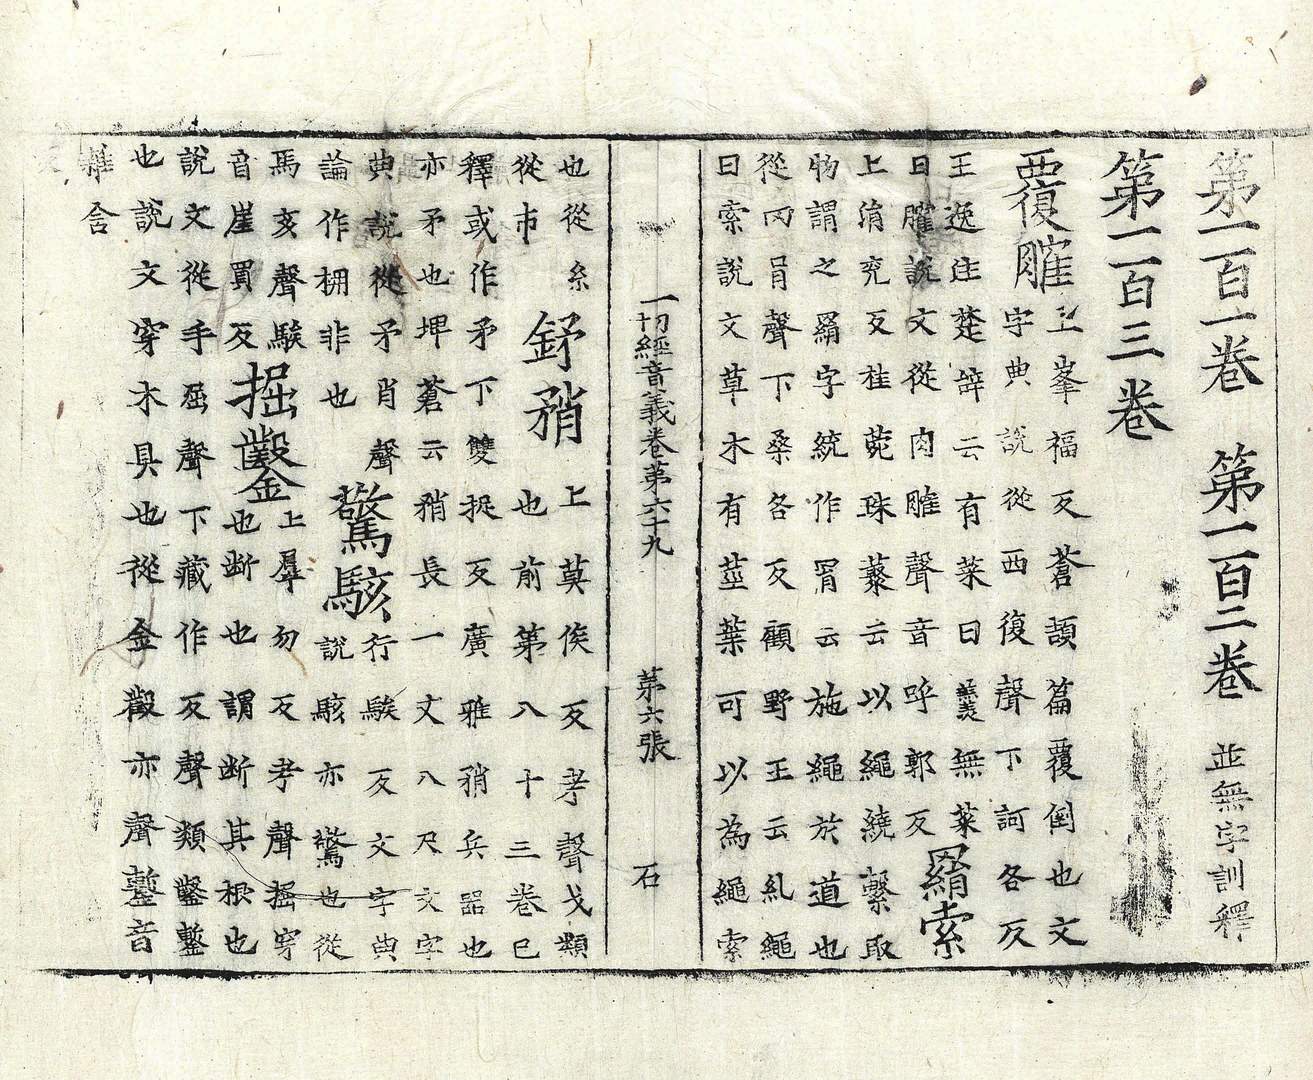 第一百一卷 第一百二卷 並無字訓釋
第一百三卷
覆𦞦 上峯福反蒼頡篇覆倒也文
字典說從西復聲下訶各反
王逸注楚辝云有菜曰羹無菜
曰臛說文從肉𦞦聲音呼郭反 罥索
上涓兖反桂菀珠藂云以繩繞繫取
物謂之罥字統作罥云施繩於道也
從网肙聲下桑各反顧野王云糺繩
曰索說文草木有莖葉可以為繩索
一切經音義卷第六十九 第六張 石
也從糸 鉾矟 上莫侯反考聲戈類
從巿 也前第八十三卷巳
釋或作矛下雙捉反廣雅矟兵器也
亦矛也埤蒼云矟長一丈八尺文字
典說從矛肖聲 驚駭 行駭反文字典
論作㭠非也 說駭亦驚也從
馬亥聲駭 掘鑿 上羣勿反考聲掘穿
音崖買反 也斷也謂斷其根也
說文從手屈聲下藏作反聲類鑿鏨
也說文穿木具也從金㲉亦聲鏨音
雜舎